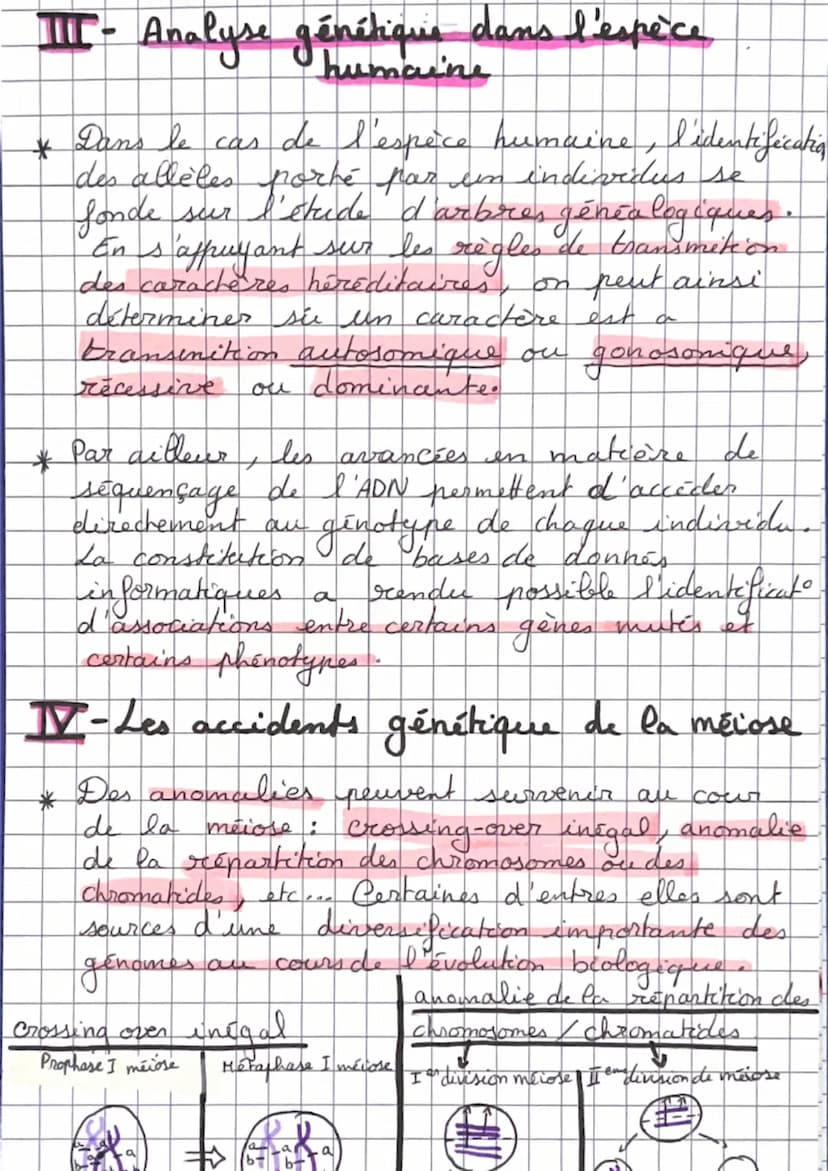 III - Analyse génétique dans l'espèce
humaine
* Dans le cas de l'espèce humaine, l'identificatio
des allèles porté par un individus se
fonde sur l'étude d'arbres généalogiques.
En s'appuyant sur les règles de transmition
des caractères héréditaires, on peut ainsi
déterminer si un caractère est a
transmition autosomique ou gonosomique,
récessive ou dominante.
* Par ailleur, les avancées en matière de
séquençage de l'ADN permettent d'accéder
directement au génotype de chaque individu.
La constitution de bases de donnés
informatiques a rendu possible l'identificat°
d'associations entre certains gènes mutés et
certains phénotypes.
IV - Les accidents génétique de la méiose
* Des anomalies peuvent survenir au cour
de la méiose : crossing-over inégal, anomalie
de la répartition des chromosomes ou des
chromatides, etc... Certaines d'entres elles sont
sources d'une diversification importante des
génomes au cours de l'évolution biologique.
anomalie de la répartition des
crossing over inégal
chromosomes / chromatides
Prophase I méiose
Métaphase I méiose
I er division méiose
II eme division de méiose
a
a
a
b
b
a